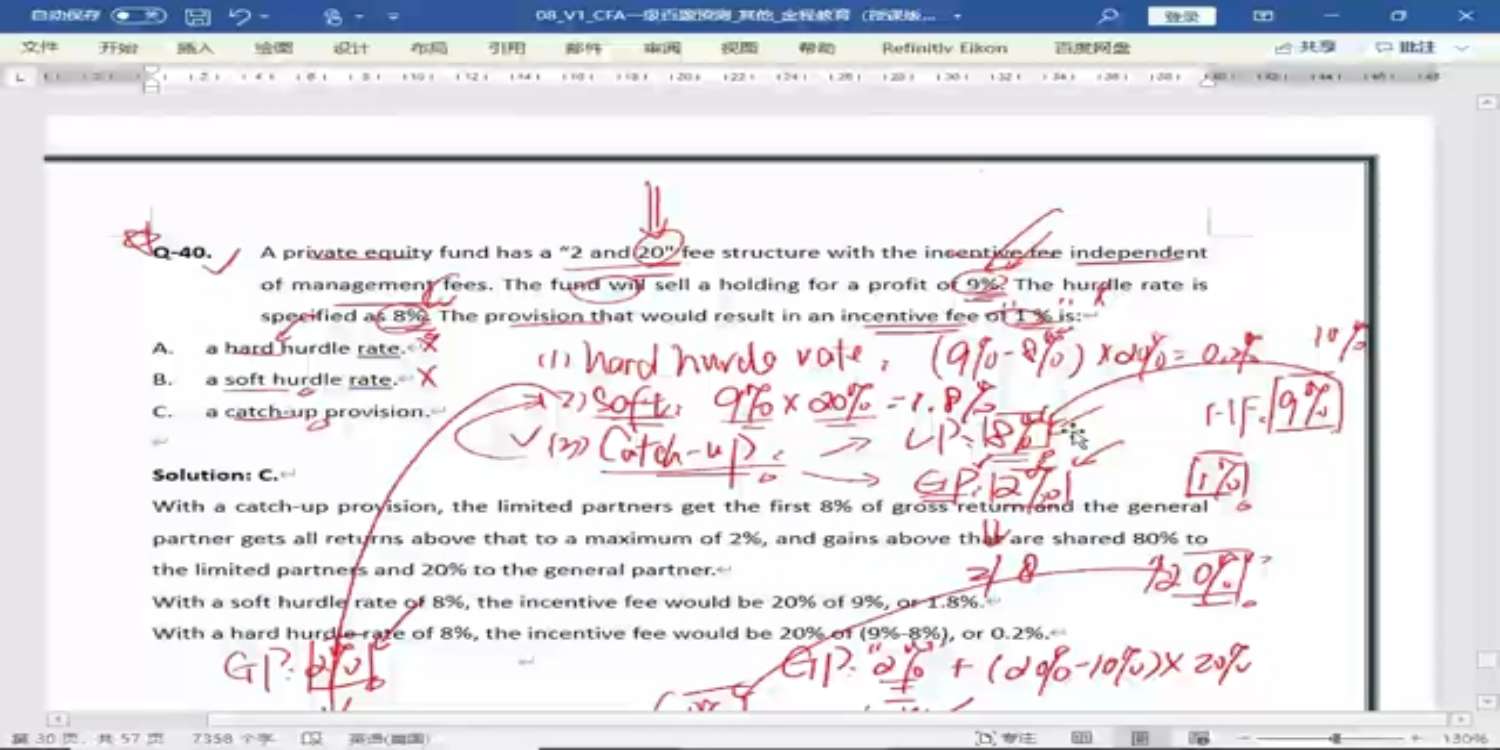 自动保存 关 08_V1_CFA一级百题预测_其他_金程教育 (授课版... 登录
文件 开始 插入 绘图 设计 布局 引用 邮件 审阅 视图 帮助 Refinitiv Eikon 百度网盘 共享 批注
Q-40. A private equity fund has a "2 and 20" fee structure with the incentive fee independent
of management fees. The fund will sell a holding for a profit of 9%. The hurdle rate is
specified as 8%. The provision that would result in an incentive fee of 1 % is:
A. a hard hurdle rate. ×
B. a soft hurdle rate. ×
C. a catch-up provision.
(1) hard hurde rate: (9%-8%)×20%=0.2%
10%
(2) Soft: 9%×20%=1.8%
HF: 9%
(3) Catch-up: LP: 8%
GP: 2%
1%
Solution: C.
With a catch-up provision, the limited partners get the first 8% of gross return and the general
partner gets all returns above that to a maximum of 2%, and gains above that are shared 80% to
the limited partners and 20% to the general partner.
2/8 20%
With a soft hurdle rate of 8%, the incentive fee would be 20% of 9%, or 1.8%.
With a hard hurdle rate of 8%, the incentive fee would be 20% of (9%-8%), or 0.2%.
GP: 2% GP: "2%" + (20%-10%)×20%
第 30 页, 共 57 页 7358 个字 英语(美国) 专注 130%